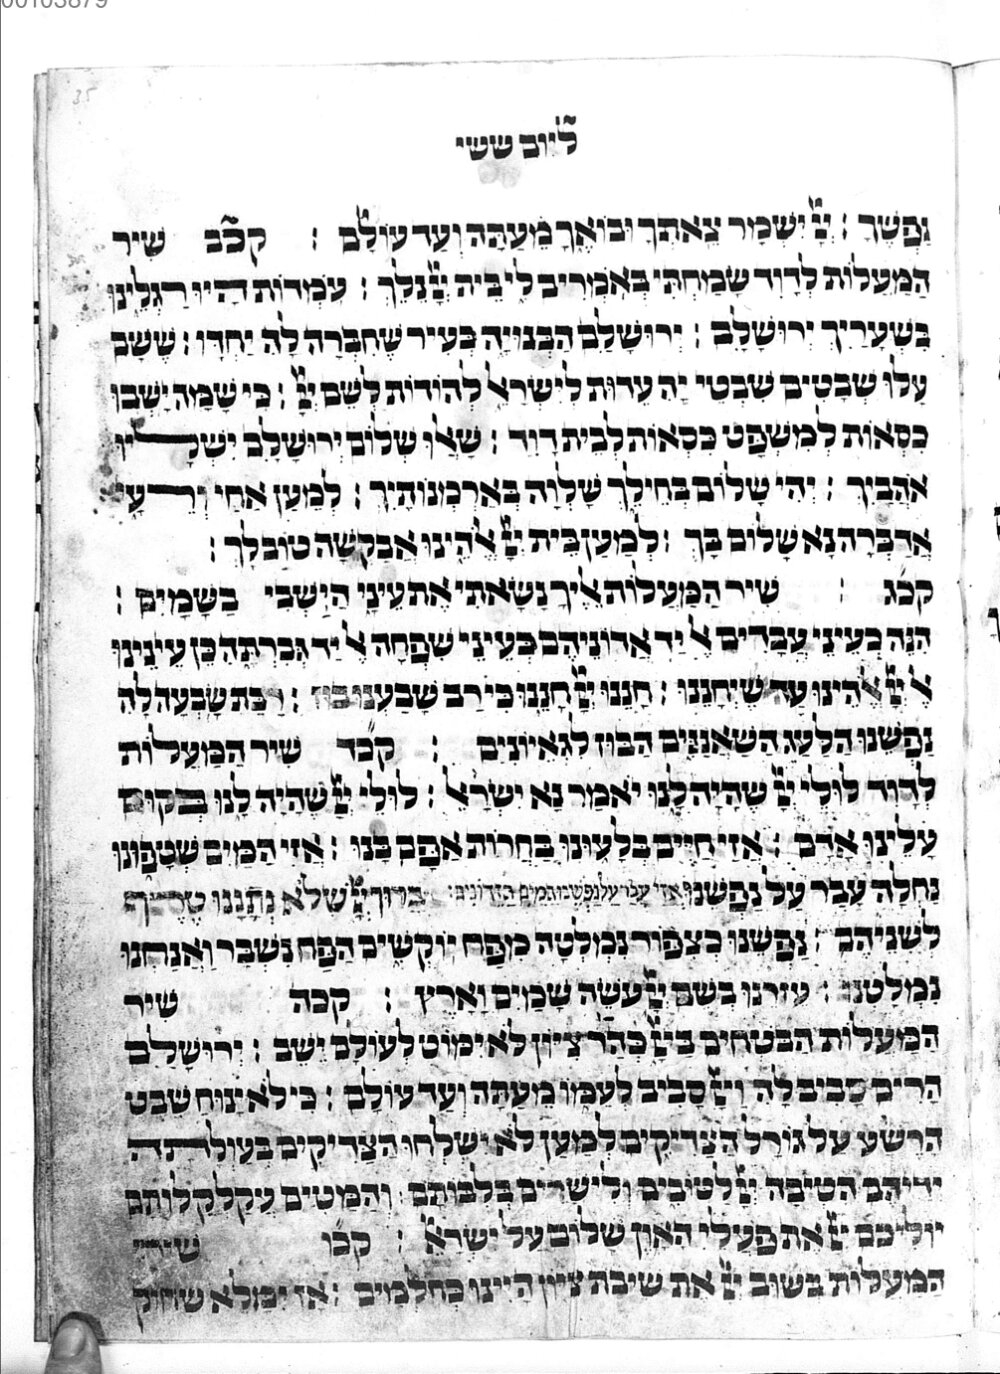 00103879
35
ליום ששי
נַפְשֶׁךָ : יְיָ יִשְׁמָר צֵאתְךָ וּבוֹאֶךָ מֵעַתָּה וְעַד עוֹלָם : קכב שִׁיר
הַמַּעֲלוֹת לְדָוִד שָׂמַחְתִּי בְּאֹמְרִים לִי בֵּית יְיָ נֵלֵךְ : עֹמְדוֹת הָיוּ רַגְלֵינוּ
בִּשְׁעָרַיִךְ יְרוּשָׁלָםִ : יְרוּשָׁלַםִ הַבְּנוּיָה כְּעִיר שֶׁחֻבְּרָה לָּהּ יַחְדָּו : שֶׁשָּׁם
עָלוּ שְׁבָטִים שִׁבְטֵי יָהּ עֵדוּת לְיִשְׂרָאֵל לְהוֹדוֹת לְשֵׁם יְיָ : כִּי שָׁמָּה יָשְׁבוּ
כִסְאוֹת לְמִשְׁפָּט כִּסְאוֹת לְבֵית דָּוִד : שַׁאֲלוּ שְׁלוֹם יְרוּשָׁלָםִ יִשְׁלָיוּ
אֹהֲבָיִךְ : יְהִי שָׁלוֹם בְּחֵילֵךְ שַׁלְוָה בְּאַרְמְנוֹתָיִךְ : לְמַעַן אַחַי וְרֵעָי
אֲדַבְּרָה נָּא שָׁלוֹם בָּךְ : לְמַעַן בֵּית יְיָ אֱלֹהֵינוּ אֲבַקְשָׁה טוֹב לָךְ :
קכג : שִׁיר הַמַּעֲלוֹת אֵלֶיךָ נָשָׂאתִי אֶת עֵינַי הַיֹּשְׁבִי בַּשָּׁמָיִם :
הִנֵּה כְעֵינֵי עֲבָדִים אֶל יַד אֲדוֹנֵיהֶם כְּעֵינֵי שִׁפְחָה אֶל יַד גְּבִרְתָּהּ כֵּן עֵינֵינוּ
אֶל יְיָ אֱלֹהֵינוּ עַד שֶׁיְּחָנֵּנוּ : חָנֵּנוּ יְיָ חָנֵּנוּ כִּי רַב שָׂבַעְנוּ בוּז : רַבַּת שָׂבְעָה לָּהּ
נַפְשֵׁנוּ הַלַּעַג הַשַּׁאֲנַנִּים הַבּוּז לִגְאֵיוֹנִים : קכד שִׁיר הַמַּעֲלוֹת
לְדָוִד לוּלֵי יְיָ שֶׁהָיָה לָנוּ יֹאמַר נָא יִשְׂרָאֵל : לוּלֵי יְיָ שֶׁהָיָה לָנוּ בְּקוּם
עָלֵינוּ אָדָם : אֲזַי חַיִּים בְּלָעוּנוּ בַּחֲרוֹת אַפָּם בָּנוּ : אֲזַי הַמַּיִם שְׁטָפוּנוּ
נַחְלָה עָבַר עַל נַפְשֵׁנוּ : אזי עבר על נפשנו המים הזדונים : בָּרוּךְ יְיָ שֶׁלֹּא נְתָנָנוּ טֶרֶף
לְשִׁנֵּיהֶם : נַפְשֵׁנוּ כְּצִפּוֹר נִמְלְטָה מִפַּח יוֹקְשִׁים הַפַּח נִשְׁבָּר וַאֲנַחְנוּ
נִמְלָטְנוּ : עֶזְרֵנוּ בְּשֵׁם יְיָ עֹשֵׂה שָׁמַיִם וָאָרֶץ : קכה שִׁיר
הַמַּעֲלוֹת הַבֹּטְחִים בַּייָ כְּהַר צִיּוֹן לֹא יִמּוֹט לְעוֹלָם יֵשֵׁב : יְרוּשָׁלִַם
הָרִים סָבִיב לָהּ וַייָ סָבִיב לְעַמּוֹ מֵעַתָּה וְעַד עוֹלָם : כִּי לֹא יָנוּחַ שֵׁבֶט
הָרֶשַׁע עַל גּוֹרַל הַצַּדִּיקִים לְמַעַן לֹא יִשְׁלְחוּ הַצַּדִּיקִים בְּעַוְלָתָה
יְדֵיהֶם הֵטִיבָה יְיָ לַטּוֹבִים וְלִישָׁרִים בְּלִבּוֹתָם : וְהַמַּטִּים עֲקַלְקַלּוֹתָם
יוֹלִיכֵם יְיָ אֶת פֹּעֲלֵי הָאָוֶן שָׁלוֹם עַל יִשְׂרָאֵל : קכו שִׁיר
הַמַּעֲלוֹת בְּשׁוּב יְיָ אֶת שִׁיבַת צִיּוֹן הָיִינוּ כְּחֹלְמִים : אָז יִמָּלֵא שְׂחוֹק